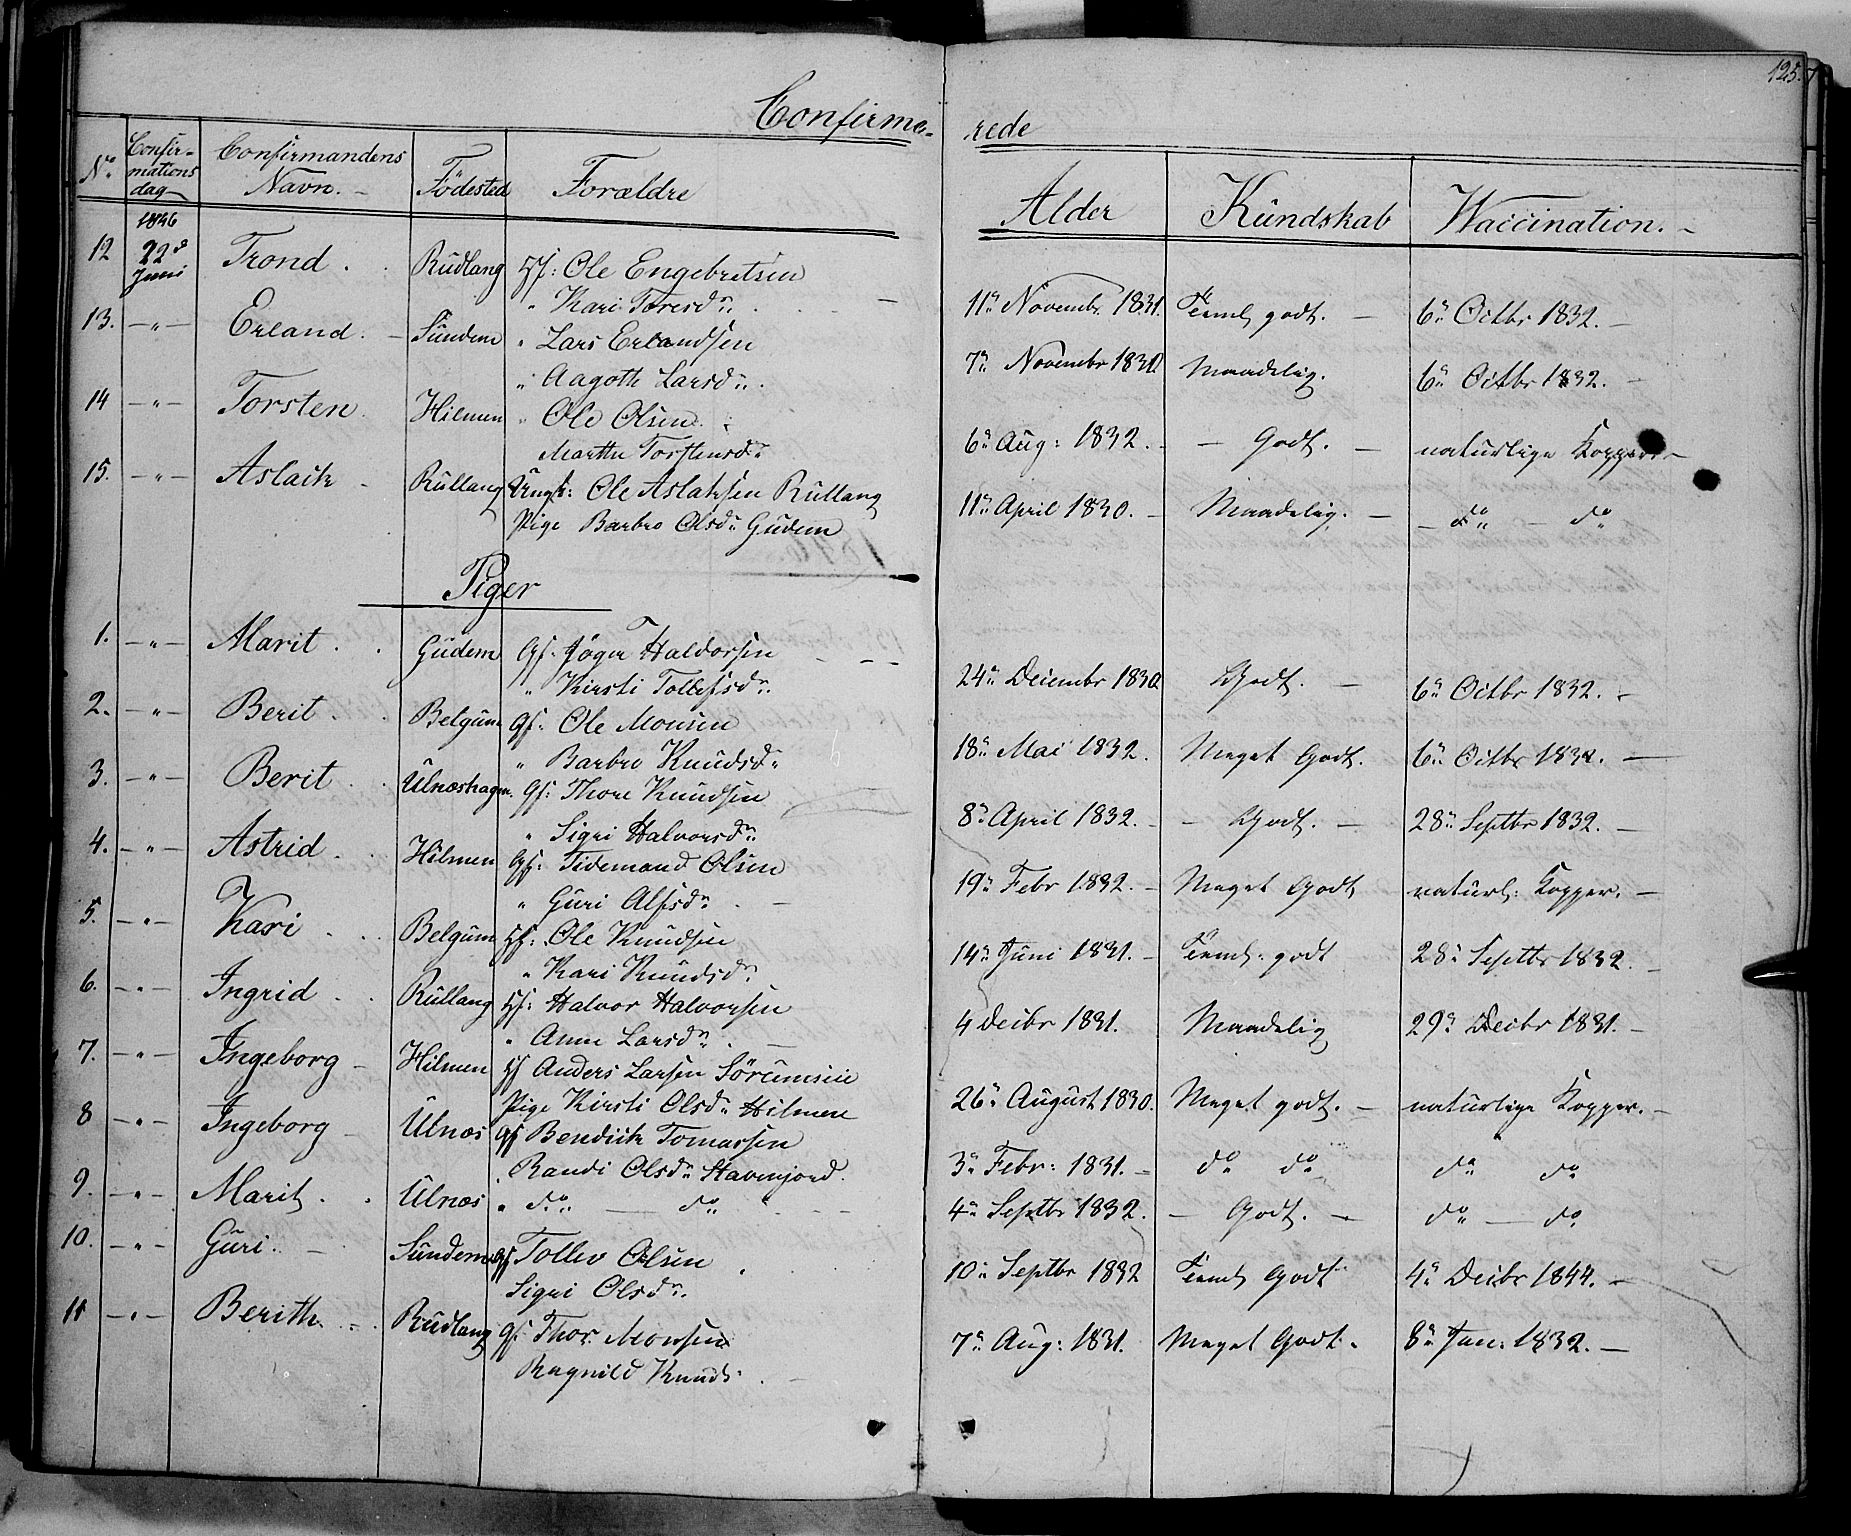 125.
Confirme- rede
No Confir-mations dag Confirmandens Navn. Födested Forældre Alder Kundskab Waccination.
1846
12 22d Juni Trond. Rudlang Hf: Ole Engebretsen
" Kari Toresdr. 11te Novembr 1831. Teml. godt. 6te Octbr 1832.
13. -"- Erland. Sundem " Lars Erlandsen
" Aagoth Larsdr. 7de Novembr 1830 Maadelig. 6te Octbr 1832.
14 -"- Torsten Hilmen " Ole Olsen
Marthe Torstensdr 6te Aug: 1832. Godt. naturlige Kopper
15. -"- Aslack Rullang Ungk: Ole Aslaksen Rullang
Pige Barbro Olsdr Gudem 11te April 1830. Maadelig. do do
Piger
1. -"- Marit. Gudem Gf. Jöger Haldorsen
" Kirsti Tollefsdr. 24de Decembr 1830 Godt. 6te Octbr 1832.
2. -"- Berit. Belgum Gf. Ole Monsen
" Barbro Knudsdr 18de Mai 1832. Meget Godt. 6te Octbr 1832.
3. -"- Berit Ulnæshagen. Gf: Thore Knudsen
" Sigri Halvorsdr. 8de April 1832. Godt. 28de Septbr 1832.
4. -"- Astrid. Hilmen Gf: Tidemand Olsen
" Guri Alfsdr. 19de Febr 1832. Meget Godt naturl: Kopper.
5. -"- Kari Belgum Hf: Ole Knudsen
" Kari Knudsdr. 14de Juni 1831. Teml. godt 28de Septbr 1832.
6. -"- Ingrid. Rullang Hf: Halvor Halvorsen
" Anne Larsdr. 4 Decbr 1831. Maadelig 29de Decbr 1831.
7. -"- Ingeborg Hilmen Hf Anders Larsen Sörumseie
Pige Kirsti Olsdr Hilmen 26de August 1830. Meget godt. naturlige Kopper.
8 -"- Ingeborg Ulnæs Gf Bendick Tomassen
Randi Olsdr Stavenjord. 3de Febr: 1831. do do do do
9. -"- Marit. Ulnæs " do do 4de Septbr 1832. Godt. do do
10. -"- Guri. Sundem Gf Tollev Olsen
Sigri Olsdr. 10de Septbr 1832 Teml. Godt 4de Decbr 1844.
11 -"- Berith. Rudlang Gf. Thor Monsen
Ragnild Knuds. 7de Aug: 1831. Meget Godt. 8de Jan: 1832.